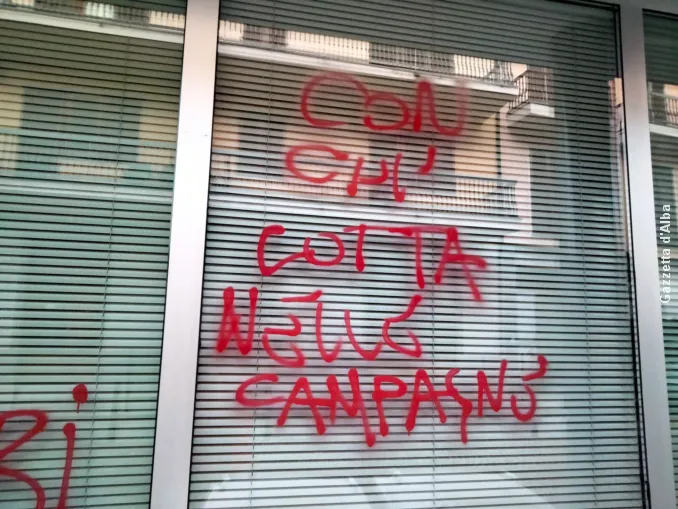 CON
CHI
COTTA
NELLE
CAMPAGNE
Bi
Gazzetta d'Alba